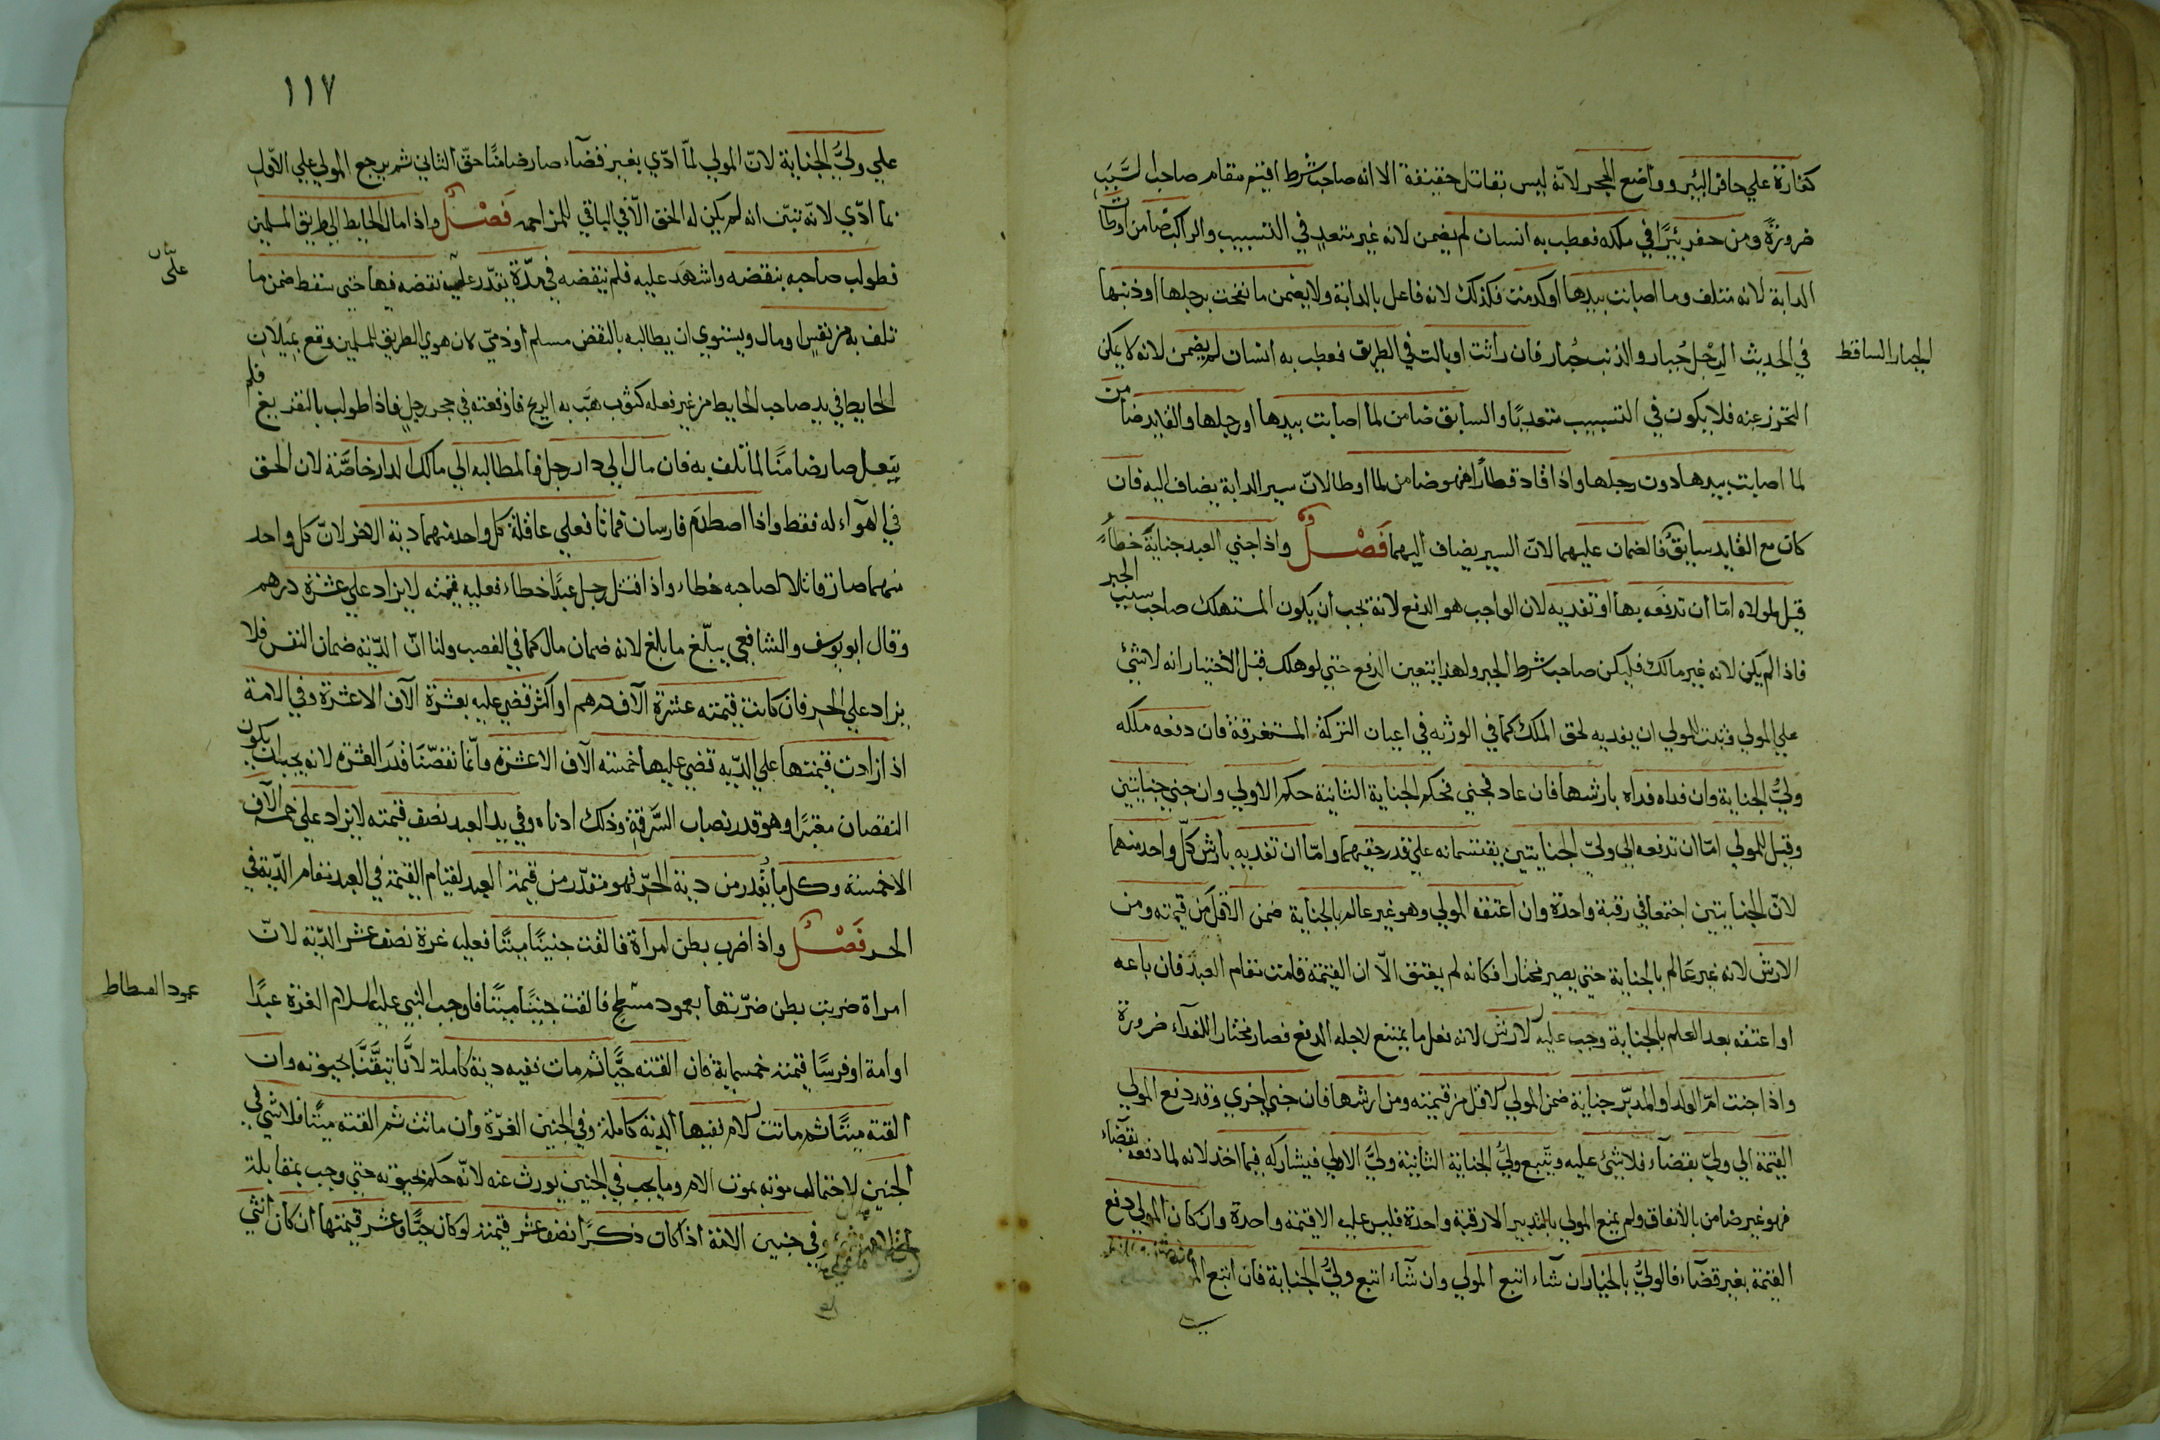 كفارة علي حافر البئر وواضع الحجر لانه ليس بقاتل حقيقة الا انه صاحب شرط اقيم مقام صاحب السبب
ضرورة ومن حفر بئرًا في ملكه فعطب به انسان لم يضمن لانه غير متعد في التسبيب والراكب ضامن لما اوطأت
الدابة لانه متلف وما اصابت بيدها او كدمت فكذلك لانه فاعل بالدابة ولا يضمن ما نفحت برجلها او ذنبها
الجبار الساقط
في الحديث الرِجل جُبار والذنب جبار فان راثت او بالت في الطريق فعطب به انسان لم يضمن لانه لا يمكن
التحرز عنه فلا يكون في التسبيب متعديًا والسايق ضامن لما اصابت بيدها او رجلها والقايد ضامن
لما اصابت بيدها دون رجلها واذا قاد قطارًا فهو ضامن لما اوطا لانّ سير الدابة يضاف اليه فان
كان مع القايد سايقٌ فالضمان عليهما لانّ السير يضاف اليهما فَصْلٌ واذا جني العبد جنايةً خطاءً
قيل لمولاه امّا ان تدفعه بها او تفديه لان الواجب هو الدفع لانه يجب أن يكون المستهلك صاحب سبب الجبر
فاذا لم يكن لانه غير مالك فليكن صاحب شرط الجبر ولهذا يتعين الدفع حتي لو هلك قبل الاختيار انه لا شئ
علي المولي وثبت للمولي ان يفديه لحق الملك كما في الورثه في اعيان التركة المستغرقة فان دفعه ملكه
وليُّ الجناية وان فداه فداه بارشها فان عاد فجني فحكم الجناية الثانية حكم الاولي وان جني جنايتين
وقيل للمولي امّا ان تدفعه الي وليّ الجنايتين يقتسمانه علي قدر حقيهما وامّا ان تفديه بأرش كلّ واحد منهما
لانّ الجنايتين اجتمعا في رقبة واحدة وان اعتقه المولي وهو غير عالم بالجناية ضمن الاقلّ من قيمته ومن
الارش لانه غير عَالم بالجناية حتي يصير مختارا فكانه لم يعتق الاّ ان القيمة قامت مقام العبد فان باعه
او اعتقه بعد العلم بالجناية وجب عليه الارش لانه فعل ما يمنع لاجله الدفع فصار مختارا للفدآء ضرورة
واذا جنت امّ الولد او المدبّر جناية ضمن المولي الاقل من قيمته ومن ارشها فان جني اخري وقد دفع المولي
القيمة الي وليّ بقضآء فلا شئ عليه ويتبع وليُّ الجناية الثانية وليَّ الاولي فيشاركه فيما اخذ لانه لما دفعه بقضآء
فهو غير ضامن بالاتفاق ولم يمنع المولي بالتدبير الا رقبة واحدة فليس عليه الا قيمة واحدة وان كان المولي دفع
القيمة بغير قضآء فالوليُّ بالخيار ان شآء اتبع المولي وان شآء اتبع وليُّ الجناية فان اتبع
١١٧
علي وليُّ الجناية لانّ المولي لمّا ادّي بغير قضآء صار ضامنًا حقّ الثاني ثم يرجع المولي علي الاوّل
بما ادّي لانّه تبيّن انه لم يكن له الحق الاّ في الباقي للمزاحمه فَصْلٌ واذا مال الحايط الي طريق المسلمين
فطولب صاحبه بنقضه واشهد عليه فلم ينقضه في مدّة يقدّر علي نقضه فيها حتي سقط ضمن ما
تلف به من نفس او مال ويستوي ان يطالبه بالنقض مسلم أو ذميّ لان هوي الطريق للمسلمين وقع بميلان
الحايط في يد صاحب الحايط من غير فعله كثوب هبّ به الريح فاوقعته في حجر رجل فاذا طولب بالتفريغ فلم
يفعل صار ضامنًا لما تلف به فان مال الي دار رجل فالمطالبه الي مالك الدار خاصّة لان الحق
في الهوآء له فقط واذا اصطدم فارسان فماتا فعلي عاقلة كل واحد منهما دية الاخر لانّ كل واحد
منهما صار قاتلا لصاحبه خطاء واذا قتل رجل عبدًا خطاء فعليه قيمته لا يزاد علي عشرة درهم
وقال ابو يوسف والشافعي يبلّغ ما بلغ لانه ضمان مال كما في الغصب ولنا انّ الدّية ضمان النفس فلا
يزاد علي الحر فان كانت قيمته عشرة الآف درهم او اكثر قضي عليه بعشرة الآف الا عشرة وفي الامة
اذا زادت قيمتها علي الدّيه قضي عليها خمسة الآف الا عشرة وانّما نقصّنا قدر العشره لانه يجب ان يكون
النقصان معتبرًا وهو قدر نصاب السّرقة وذلك ادناه وفي يد العبد نصف قيمته لا يزاد علي خمسه الآف
الا خمسة وكل ما يُقدر من دية الحرّ فهو مقدّر من قيمة العبد لقيام القيمة في العبد مقام الدّية في
الحر فَصْلٌ واذا ضرب بطن امراة فالقت جنينًا ميتًا فعليه غرة نصف عشر الدّية لانّ
عمود الفسطاط
امراة ضربت بطن ضرّتها بعمود مسطح فالقت جنينًا ميتًا فاوجب النبي عليه السلام الغرة عبدًا
او امة او فرسًا قيمته خمسماية فان القته حيًّا ثم مات ففيه دية كاملة لانّا تيقّنّا بحيوته وان
القته ميتًا ثم ماتت الام ففيها الدية كاملة وفي الجنين الغرّة وان ماتت ثم القته ميتًا فلا شئ في
الجنين لاحتمال موته بموت الام وما يجب في الجنين يورث عنه لانّه حكم بحيوته حتي وجب بمقابلة
وفي جنين الامة اذا كان ذكرًا نصف عشر قيمته لو كان حيًّا وعشر قيمتها ان كان انثي